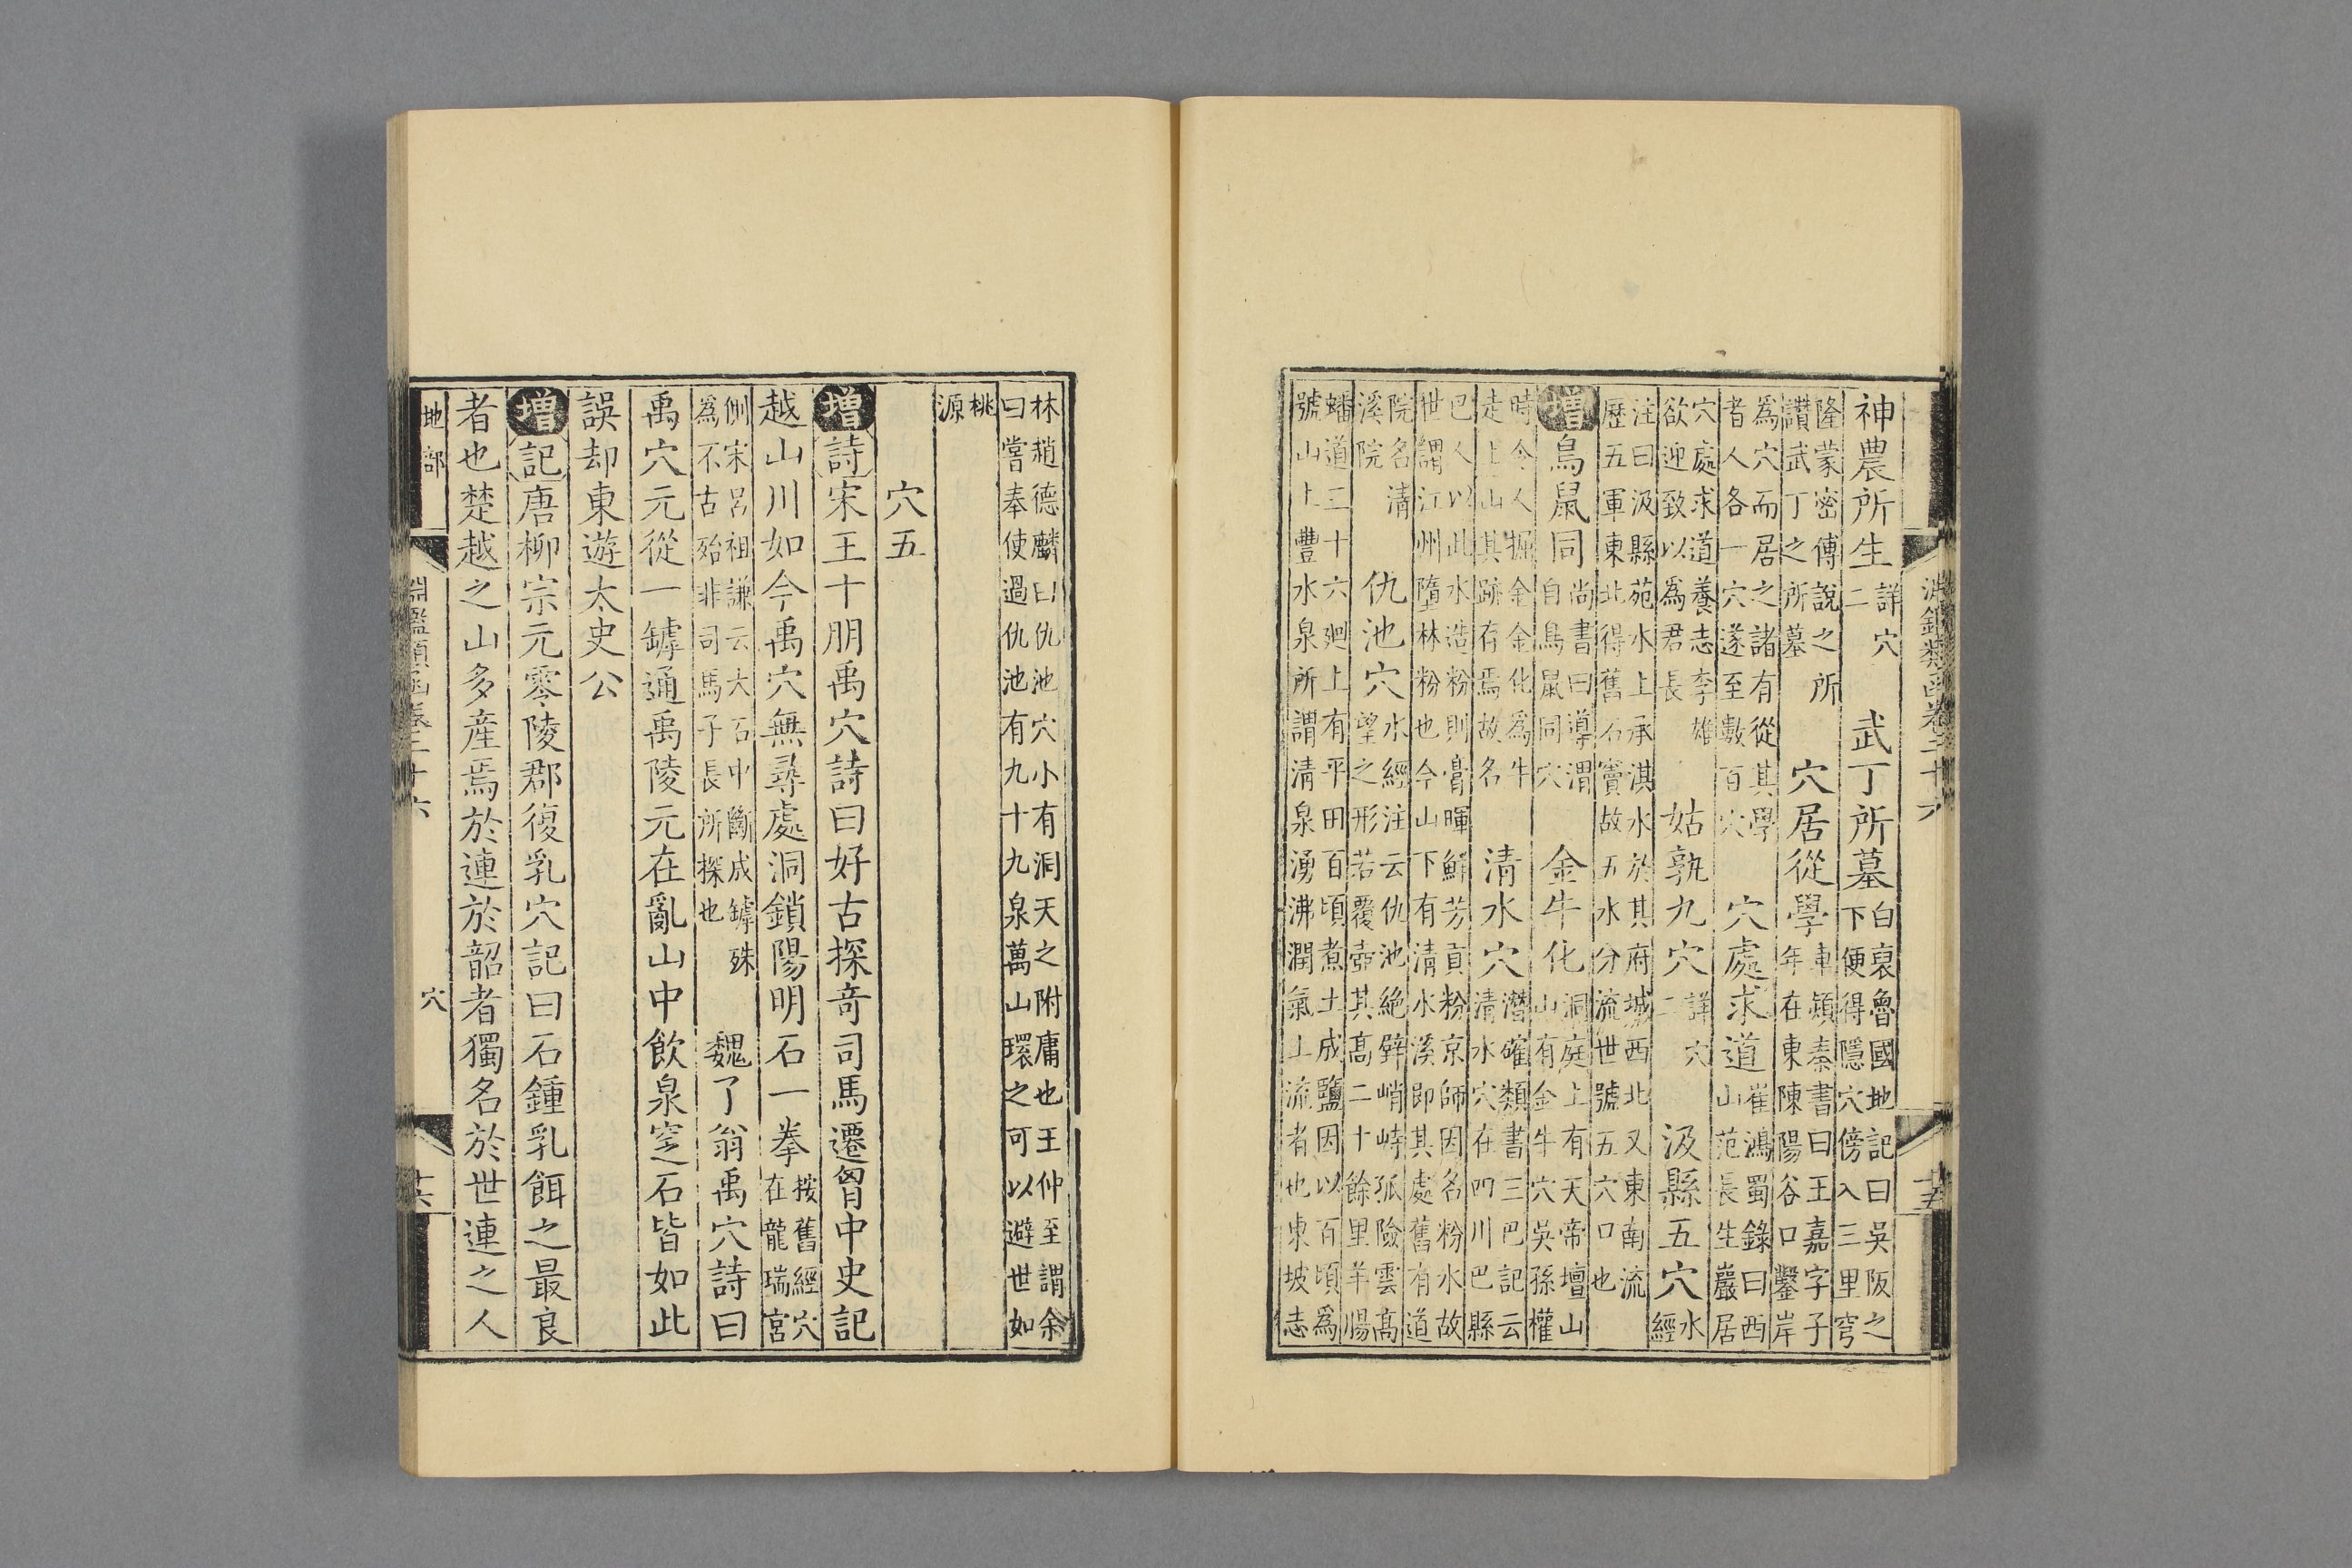 淵鑑類函卷二十六 十五
神農所生詳穴二 武丁所墓白裒魯國地記曰吳阪之下便得隱穴傍入三里穹
隆蒙密傅說之所讚武丁之所墓 穴居從學車頻秦書曰王嘉字子年在東陳陽谷口鑿岸
爲穴而居之諸有從其學者人各一穴遂至數百穴 穴處求道崔鴻蜀錄曰西山范長生巖居
穴處求道養志李雄欲迎致以爲君長 姑孰九穴詳穴二 汲縣五穴水經
注曰汲縣苑水上承淇水於其府城西北又東南流歷五軍東北得舊石竇故五水分流世號五穴口也
增鳥鼠同尚書曰導渭自鳥鼠同穴 金牛化洞庭上有天帝壇山山有金牛穴吳孫權
時令人掘金金化爲牛走上山其跡存焉故名 清水穴潛確類書三巴記云清水穴在四川巴縣
巴人以此水造粉則膏暉鮮芳貢粉京師因名粉水故世謂江州墮林粉也今山下有清水溪即其處舊有道
院名清溪院 仇池穴水經注云仇池絶壁峭峙孤險雲髙望之形若覆壺其髙二十餘里羊腸
蟠道三十六廻上有平田百頃煮土成鹽因以百頃爲號山上豐水泉所謂清泉湧沸潤氣上流者也東坡志
林趙德麟曰仇池穴小有洞天之附庸也王仲至謂余曰嘗奉使過仇池有九十九泉萬山環之可以避世如
桃源
穴五
增詩宋王十朋禹穴詩曰好古探竒司馬遷胷中史記
越山川如今禹穴無尋處洞鎖陽明石一拳按舊經穴在龍瑞宮
側宋呂祖謙云大石中斷成罅殊爲不古殆非司馬子長所探也 魏了翁禹穴詩曰
禹穴元從一罅通禹陵元在亂山中飲泉窆石皆如此
誤却東遊太史公
增記唐柳宗元零陵郡復乳穴記曰石鍾乳餌之最良
者也楚越之山多産焉於連於韶者獨名於世連之人
地部 淵鑑類函卷二十六 穴 十六